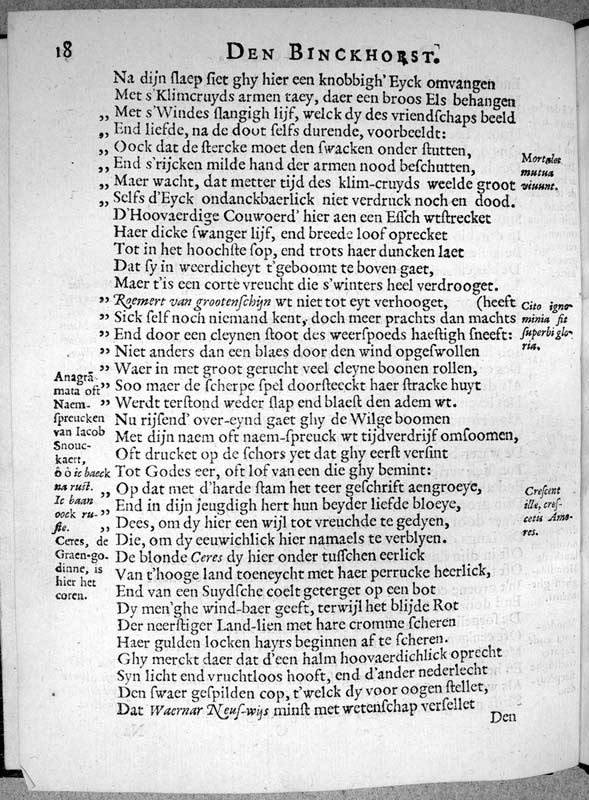 18
DEN BINCKHORST.
Na dijn slaep siet ghy hier een knobbigh' Eyck omvangen
Met s'Klimcruyds armen taey, daer een broos Els behangen
„ Met s'Windes slangigh lijf, welck dy des vriendschaps beeld
„ End liefde, na de doot selfs durende, voorbeeldt:
„ Oock dat de stercke moet den swacken onder stutten,
„ End s'rijcken milde hand der armen nood beschutten,
„ Maer wacht, dat metter tijd des klim-cruyds weelde groot
„ Selfs d'Eyck ondanckbaerlick niet verdruck noch en dood.
Mortales
mutua
viuunt.
D'Hoovaerdige Couwoerd' hier aen een Essch wtstrecket
Haer dicke swanger lijf, end breede loof oprecket
Tot in het hoochste sop, end trots haer duncken laet
Dat sy in weerdicheyt t'geboomt te boven gaet,
Maer t'is een corte vreucht die s'winters heel verdrooget.
„ Roemert van grootenschijn wt niet tot eyt verhooget, (heeft
„ Sick self noch niemand kent, doch meer prachts dan machts
„ End door een cleynen stoot des weerspoeds haestigh sneeft:
„ Niet anders dan een blaes door den wind opgeswollen
„ Waer in met groot gerucht veel cleyne boonen rollen,
„ Soo maer de scherpe spel doorsteeckt haer stracke huyt
„ Werdt terstond weder slap end blaest den adem wt.
Cito igno-
minia fit
superbi glo-
ria.
Nu rijsend' over-eynd gaet ghy de Wilge boomen
Met dijn naem oft naem-spreuck wt tijdverdrijf omsoomen,
Oft drucket op de schors yet dat ghy eerst versint
Tot Godes eer, oft lof van een die ghy bemint:
„ Op dat met d'harde stam het teer geschrift aengroeye,
„ End in dijn jeugdigh hert hun beyder liefde bloeye,
„ Dees, om dy hier een wijl tot vreuchte te gedyen,
„ Die, om dy eeuwichlick hier namaels te verblyen.
Anagrā-
mata oft
Naem-
spreucken
van Iacob
Snouc-
kaert,
ô ô ic baeck
na rust.
Ic baan
oock ru-
ste.
Crescent
illæ, cres-
cetis Amo-
res.
De blonde Ceres dy hier onder tusschen eerlick
Van t'hooge land toeneycht met haer perrucke heerlick,
End van een Suydsche coelt getergt op een bot
Dy men'ghe wind-baer geeft, terwijl het blijde Rot
Der neerstiger Land-lien met hare cromme scheren
Haer gulden locken hayrs beginnen af te scheren.
Ghy merckt daer dat d'een halm hoovaerdichlick oprecht
Syn licht end vruchtloos hooft, end d'ander nederlecht
Den swaer gespilden cop, t'welck dy voor oogen stellet,
Dat Waernar Neus-wijs minst met wetenschap versellet
Ceres, de
Graen-go-
dinne, is
hier het
coren.
Den